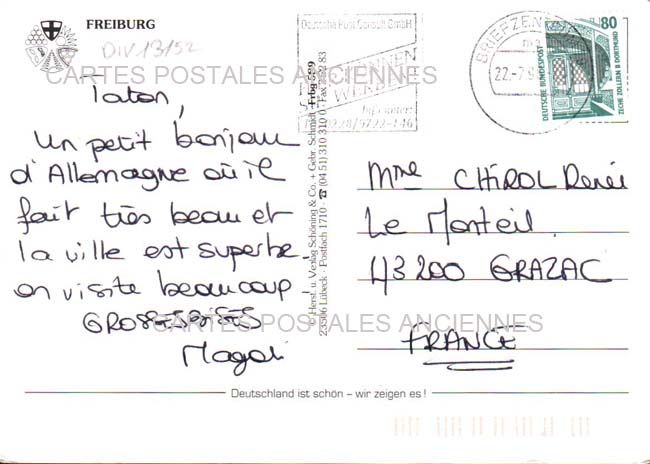 FREIBURG
DIV 13152
Deutsche Post Consult GmbH
KÖNNEN
WERBEN
Info unter:
0228/9722-146
BRIEFZEN
22.-7.9
80
DEUTSCHE BUNDESPOST
ZECHE ZOLLERN II · DORTMUND
CARTES POSTALES ANCIENNES
Taton,
un petit bonjour
d'Allemagne où il
fait très beau et
la ville est superbe.
on visite beaucoup.
GROSSES BISES
Magali
© Herst. u. Verlag Schöning & Co. + Gebr. Schmidt · Frbg 599
23506 Lübeck · Postfach 1710 · ☎ (04 51) 310 310
Mme CHIROL Renée
Le Monteil
43200 GRAZAC
FRANCE
CARTES POSTALES ANCIENNES
Deutschland ist schön – wir zeigen es !